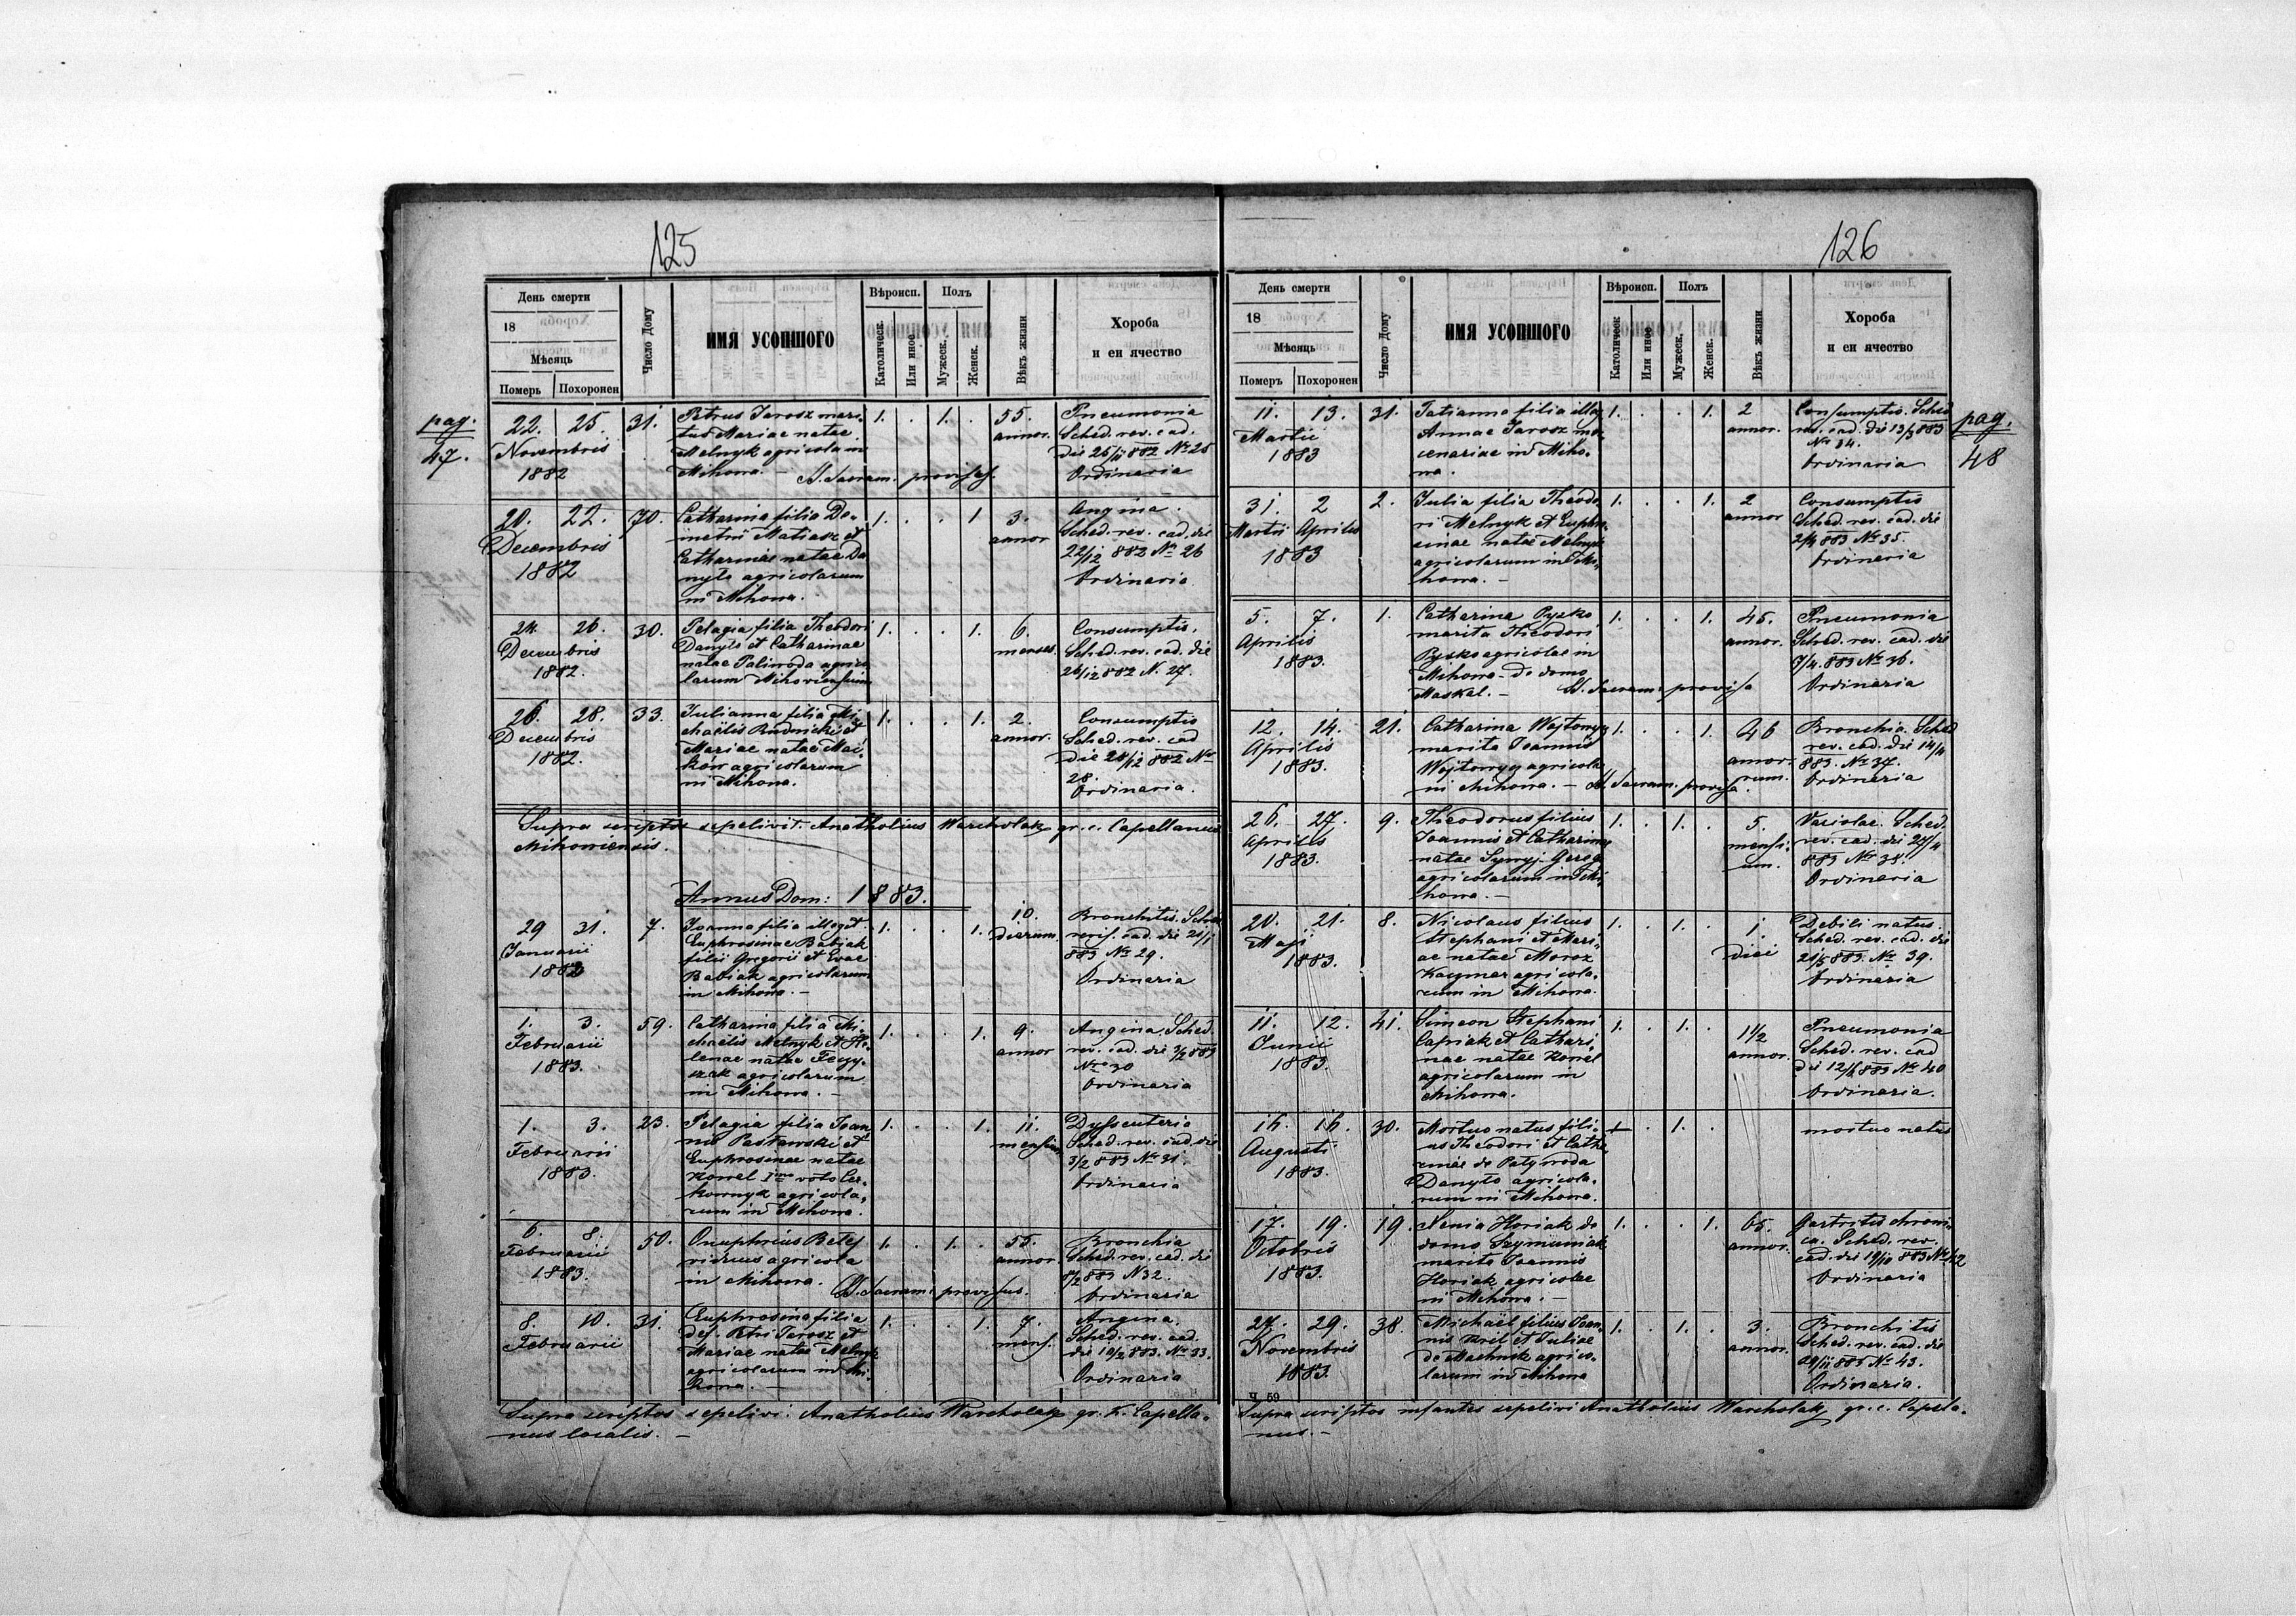 125
День смерти
18
Мѣсяць
Померъ
Похоронен
Число Дому
ИМЯ УСОПШОГО
Вѣроисп.
Католическ.
Или иное
Полъ
Мужеск.
Женск.
Вѣкъ жизни
Хороба
и еи ячество
pag.
47.
22. 25. 31. Petrus Jarosz mari- 1. . 1. . 55. Pneumonia
Novembris tus Mariae natae annor. Sched. rev. cad.
Melnyk agricola in die 25/11 882 No 25
1882 Mihowa. — S. Sacram. provisus. Ordinaria
20. 22. 70. Catharina filia De- 1. . . 1 3. Angina.
Decembris metrii Matiasz et annor Sched. rev. cad. die
1882 Catharinae natae Da 22/12 882 No 26
nyło agricolarum Ordinaria
in Mihowa.
24. 26. 30. Pelagia filia Theodori 1. . . 1. 6. Consumptis.
Decembris Danyło et Catharinae menses. Sched. rev. cad. die
1882. natae Paliwoda agrico 26/12 882 N. 27.
larum Mihoviensium
26. 28. 33. Julianna filia Mi 1. . . 1. 2. Consumptis
Decembris chaëlis Rudnicki et annor. Sched. rev. cad
1882. Mariae natae Mai- die 28/12 882 No
ków agricolarum 28.
in Mihowa. Ordinaria.
Supra scriptos sepelivit. Anatholius Warcholak gr. c. Capellanus
Mihowiensis.
Annus Dom: 1883.
29 31. 7. Joanna filia illeg et 1. . . 1. 10. Bronchitis. Sched
Januarii Euphrosinae Babiak dierum. revis. cad. die 21/1
1883 filii Gregorii et Evae 883 No 29.
Babiak agricolarum Ordinaria
in Mihowa. —
1. 3. 59. Catharina filia Mi- 1. . . 1. 9. Angina. Sched.
Februarii chaëlis Melnyk et He- annor rev. cad. die 3/2 883
1883. lenae natae No 30
agricolarum Ordinaria
in Mihowa. —
1. 3. 23. Pelagia filia Joan 1. . . 1. 11. Dyssenteria
Februarii nis Pasławski et mensium Sched. rev. cad. die
1883. Euphrosinae natae 3/2 883 No 31.
Kowel Imo voto Cer- Ordinaria
kownyk agricola-
rum in Mihowa.
6. 8. 50. Onuphrius Betej 1. . 1. . 55. Bronchia
Februarii viduus agricola annor. Sched. rev. cad. die
1883. in Mihowa. 8/2 883 N32.
S. Sacram: provisus. Ordinaria
8. 10. 31. Euphrosina filia 1. . . 1. 7. Angina.
Februarii def. Petri Jarosz et mens. Sched. rev. cad.
Mariae natae Melnyk die 10/2 883. No 33.
agricolarum in Mi- Ordinaria
howa. —
Supra scriptos sepelivi. Anatholius Warcholak gr. k. Capella-
nus localis. —
126
День смерти
18
Мѣсяць
Померъ
Похоронен
Число Дому
ИМЯ УСОПШОГО
Вѣроисп.
Католическ
Или иное
Полъ
Мужеск.
Женск.
Вѣкъ жизни
Хороба
и еи ячество
pag.
48
11. 13. 31. Tatianna filia illeg 1. . . 1. 2 Consumptis. Sched
Martii Annae Jarosz mer- annor. rev. cad. die 13/3 883
1883 cenariae in Miho- No 34.
wa. Ordinaria
31. 2 2. Julia filia Theodo- 1. . . 1. 2 Consumptis
Martii Aprilis ri Melnyk et Euphro- annor Sched. rev. cad. die
1883 sinae natae Melnyk 2/4 883 No 35.
agricolarum in Mi- Ordinaria
howa. —
5. 7. 1. Catharina Pyszko 1. . . 1. 45. Pneumonia
Aprilis marita Theodori annor. Sched. rev. cad. die
1883. Pyszko agricolae in 7/4. 883 No 36.
Mihowa - de domo Ordinaria
Maskal. — S. Sacram: provisa
12. 14. 21. Catharina Wojtowycz 1. . . 1. 46 Bronchia. Sched
Aprilis marita Joannis annor- rev. cad. die 14/4
1883. Wojtowycz agricolae rum. 883. No 37.
in Mihowa. — S. Sacram. provisa. Ordinaria
26. 27. 9. Theodorus filius 1. . 1. . 5. Variolae. Sched.
Aprilis Joannis et Catharinae mensi- rev. cad. die 27/4
1883. natae um. 883 No 38.
agricolarum in Mi- Ordinaria
howa. —
20. 21. 8. Nicolaus filius 1. . 1. . 1. Debili natus.
Maji Stephani et Mari- diei Sched. rev. cad. die
1883. ae natae Moroz 21/5 883. No 39.
Kaczmar agricola- Ordinaria
rum in Mihowa.
11. 12. 41. Simeon Stephani 1. . 1. . 1 1/2 Pneumonia
Junii Capiak et Cathari- annor. Sched. rev. cad
1883. nae natae Kowel die 12/6 883 No 40
agricolarum in Ordinaria.
Mihowa.
16. 16. 30. Mortuo natus fili- + . 1. . mortuo natus
Augusti us Theodori et Catha
1883. rinae de Patywoda
Danyło agricola-
rum in Mihowa.
17. 19. 19. Xenia Horiak de 1. . . 1. 65. Gastritis chroni-
Octobris domo Szymuniak annor. ca. Sched. rev.
1883. marita Joannis cad. die 19/10 883 No 42
Horiak agricolae Ordinaria
in Mihowa. —
27. 29. 38. Michaël filius Joan- 1. . 1. . 3. Bronchitis
Novembris nis Kril et Juliae annor. Sched. rev. cad. die
1883. de Machnik agrico- 29/11 883 No 43.
larum in Mihowa Ordinaria.
Ч. 59
Supra scriptos infantes sepelivi Anatholius Warcholak gr. c. Capella-
nus. —